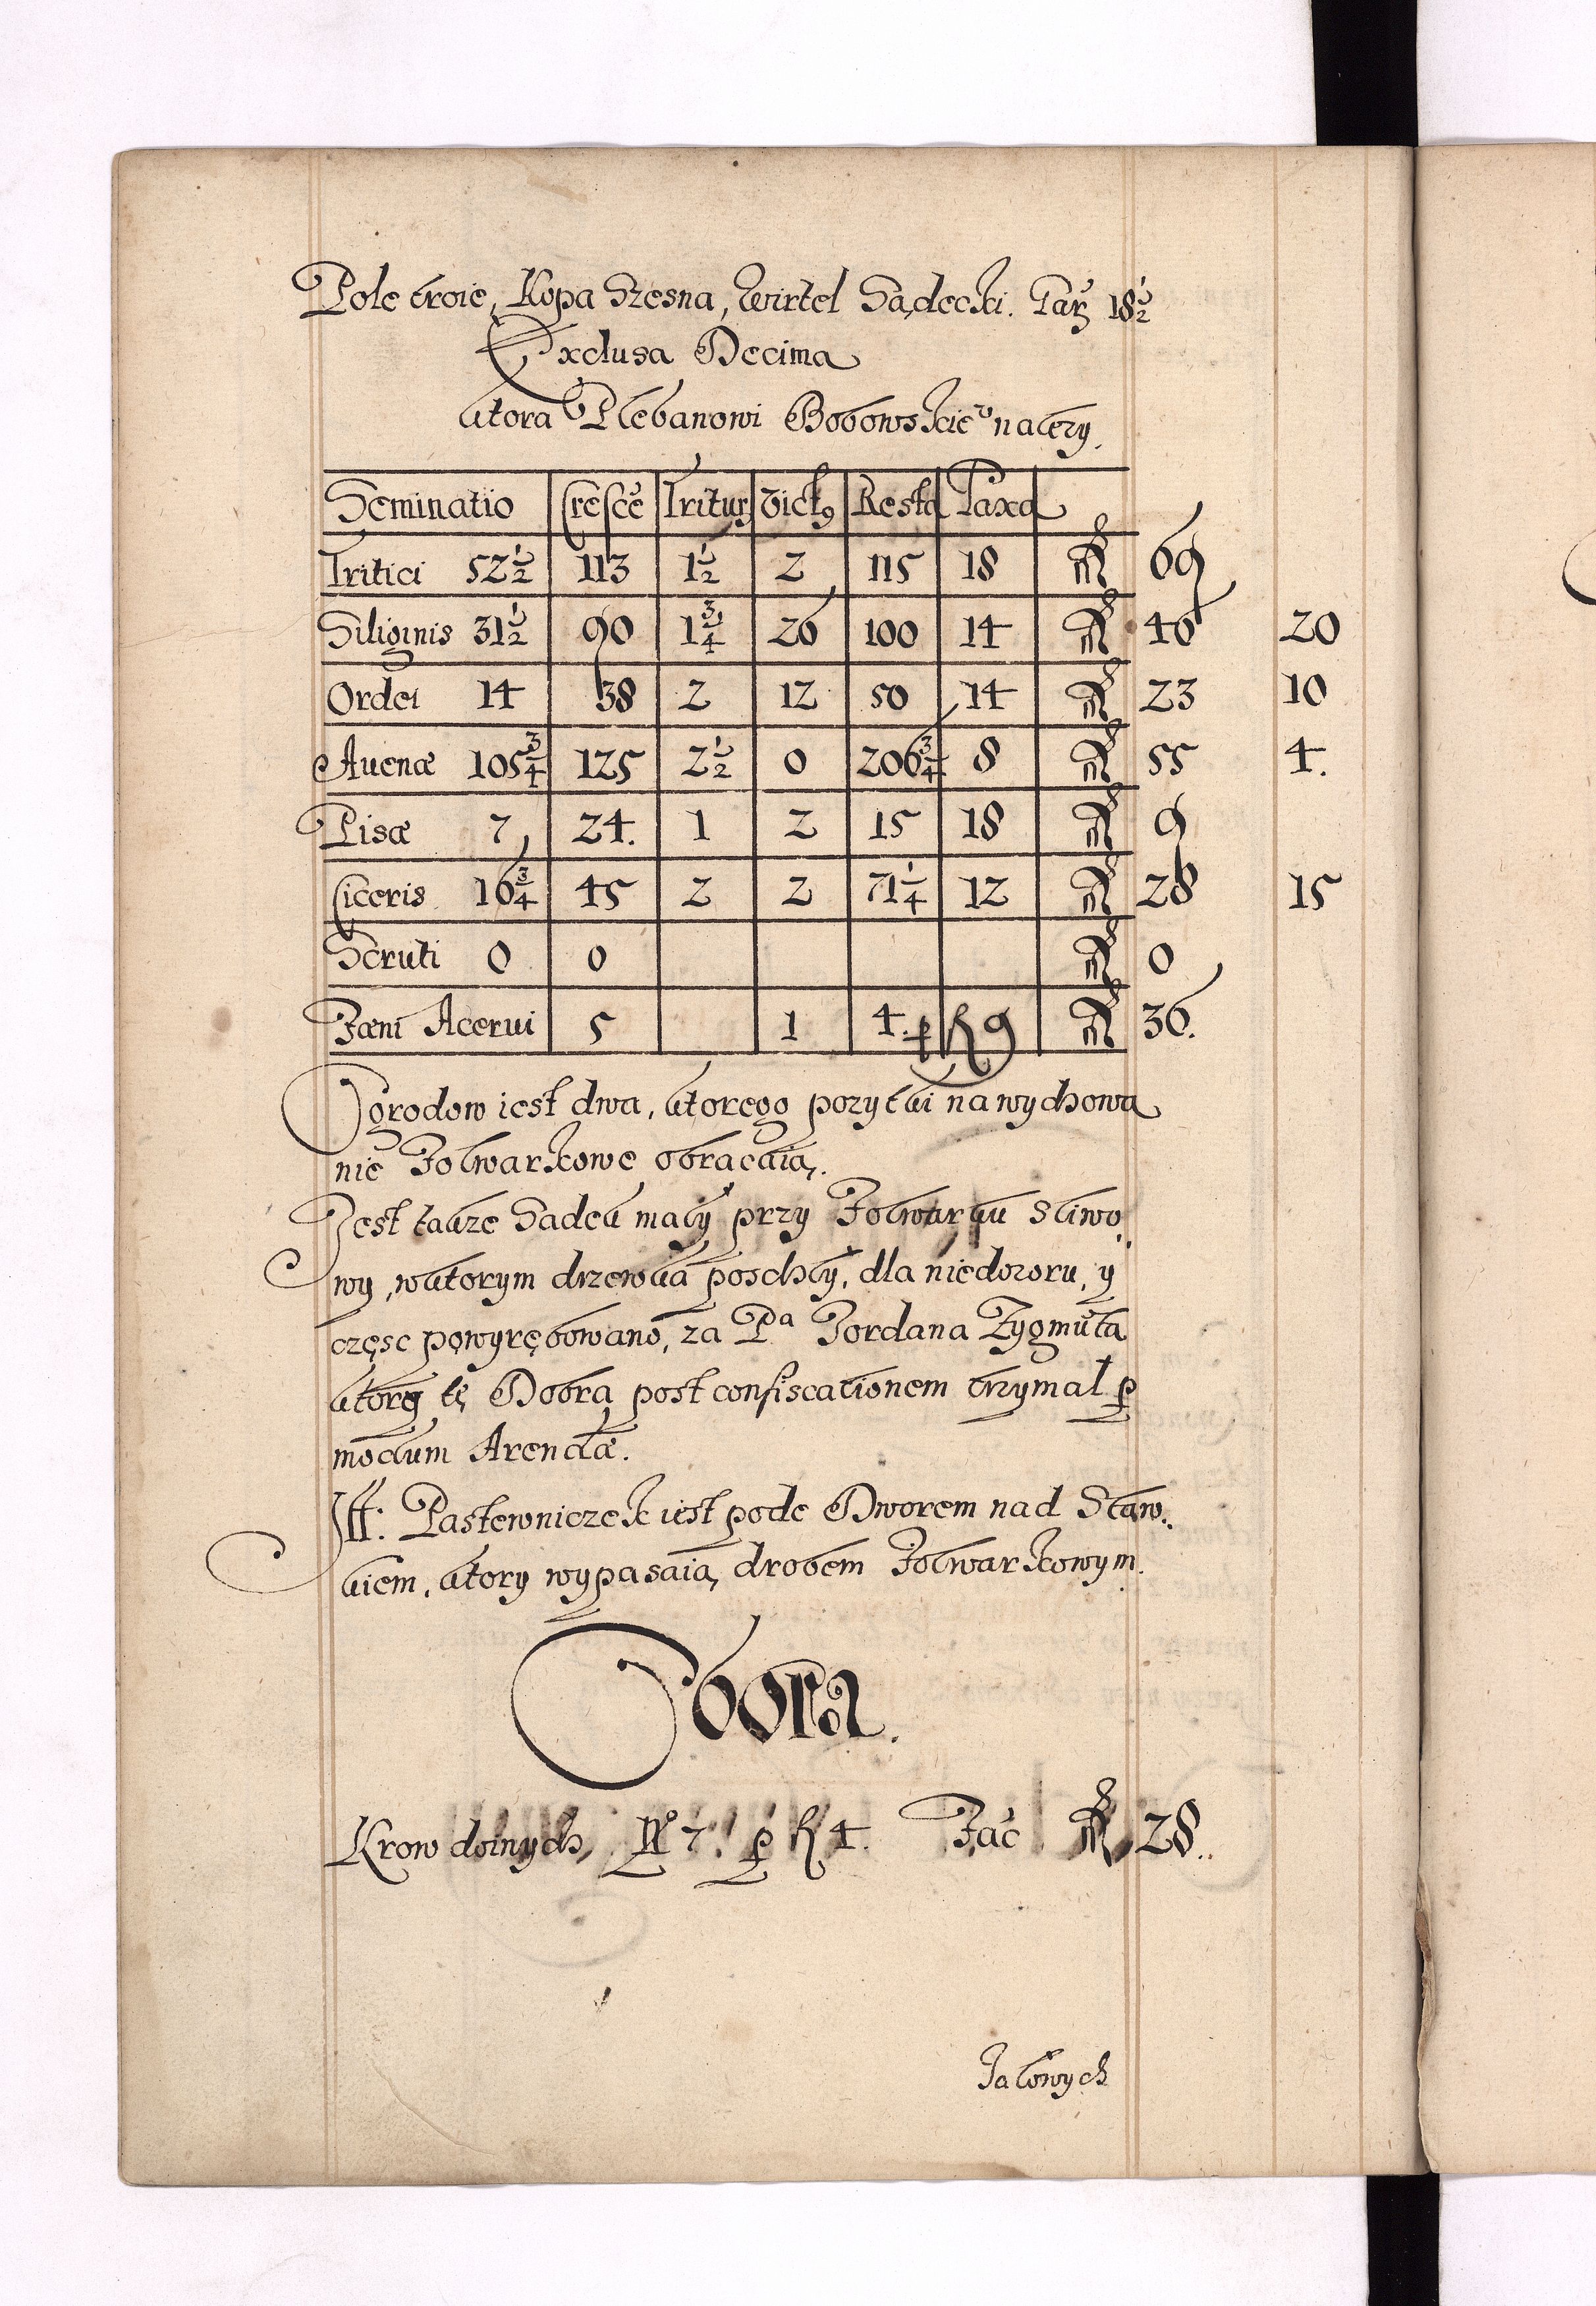 Pole troie, Kopa Szesna, Wirtel Sądecki. Gar̃ 18½
Exclusa Decima
ktora Plebanowi Bobowskiẽº nalezy.
Seminatio Cresčẽ Tritur Vict9 Resta Taxa
Tritici 52½ 113 1½ 2 115 18 69
Siliginis 31½ 90 1¾ 26 100 14 46 20
Ordei 14 38 2 12 50 14 23 10
Auenæ 105¾ 125 2½ 0 206¾ 8 55 4.
Pisæ 7 24. 1 2 15 18 9
Ciceris 16¾ 45 2 2 71¼ 12 28 15
Semti 0 0 0
Fæni Acerui 5 1 4. ꝑ fl 9 36.
Ogrodow iest dwa, ktorego pozytki na wychowa
nie Folwarkowe obracaią.
Jest takze Sadek mały przy Folwarku sliwo„
wy, w ktorym drzewka poschły, dla niedozoru, y
częsc powyrębowano, za Pª Jordana Zygmũta
ktory tę Dobra post confiscationem trzymal ꝑ
modum Arendæ.
Itt: Pastewniczek iest pode Dworem nad Staw„
kiem, ktory wypasaią drobem Folwarkowym.
Obora.
Krow doinych Nº 7. ꝑ fl 4. Fac̃ 28.
Jałowych